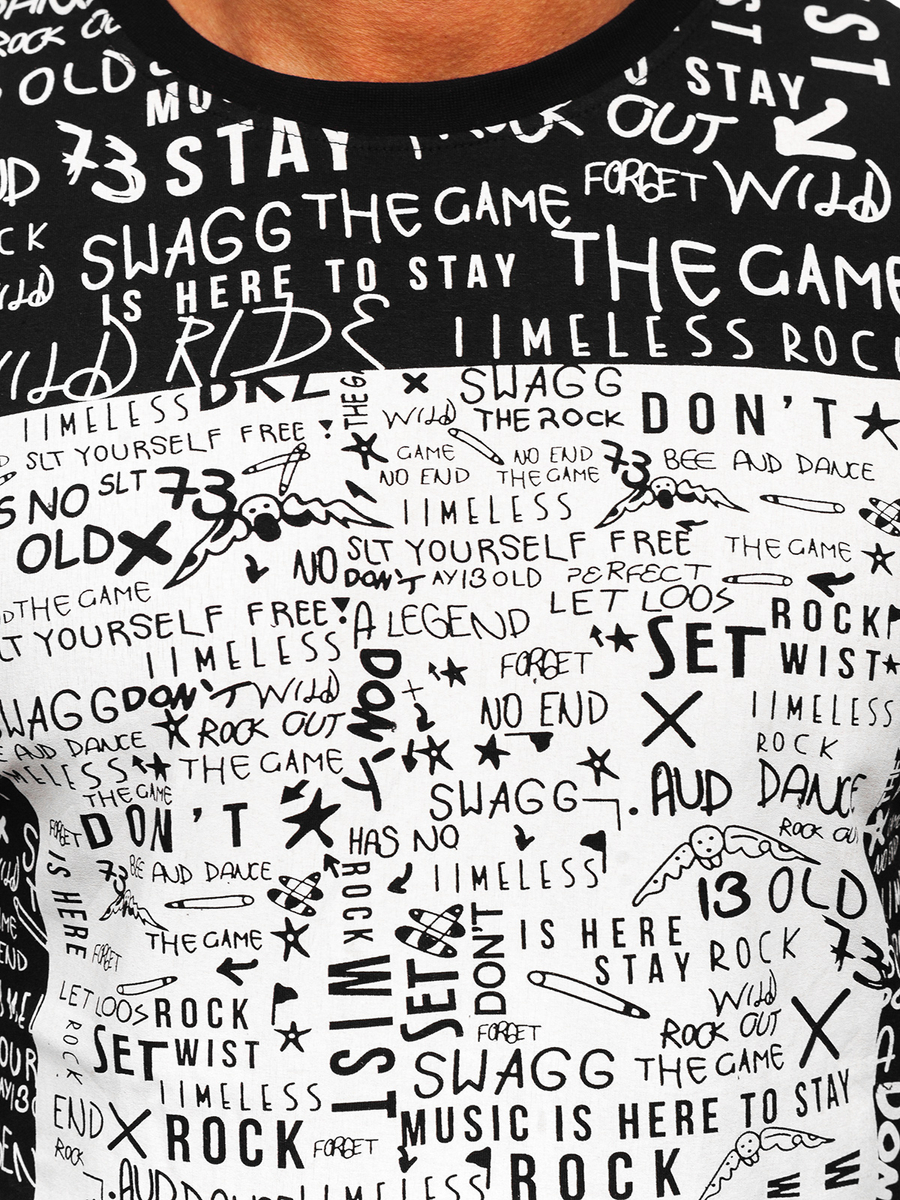 ROCK OU
OLD
STAY
OUT
73 STAY
FORGET WILD
SWAGG THE GAME
IS HERE TO STAY THE GAME
WILD RIDE IIMELESS ROC
IIMELESS
SWAGG
WILD THE ROCK DON'T
SLT YOURSELF FREE
GAME NO END 73 BEE AND DANCE
NO END THE GAME
S NO SLT 73
IIMELESS
OLD
SLT YOURSELF FREE THE GAME
NO DON'T AY13OLD PERFECT
THE GAME
LET LOOS
LT YOURSELF FREE A LEGEND ROCK
IIMELESS FORGET SET WIST
DON'T
SWAGG DON'T WILD
NO END IIMELESS
ROCK OUT
E AND DANCE ROCK
MELESS THE GAME
THE GAME SWAGG AUD DANCE
FORGET DON'T HAS NO ROCK OU
73 BEE AND DANCE IIMELESS
13 OLD
IS HERE
ROCK WIST
THE GAME IS HERE
FORGET
SET DON'T
STAY ROCK 73
LET LOOS ROCK WILD
ROCK
FORGET ROCK OUT
SET WIST
SWAGG THE GAME
IIMELESS
END ROCK FORGET MUSIC IS HERE TO STAY
ROCK
AUD DANCE IIMELESS ROCK